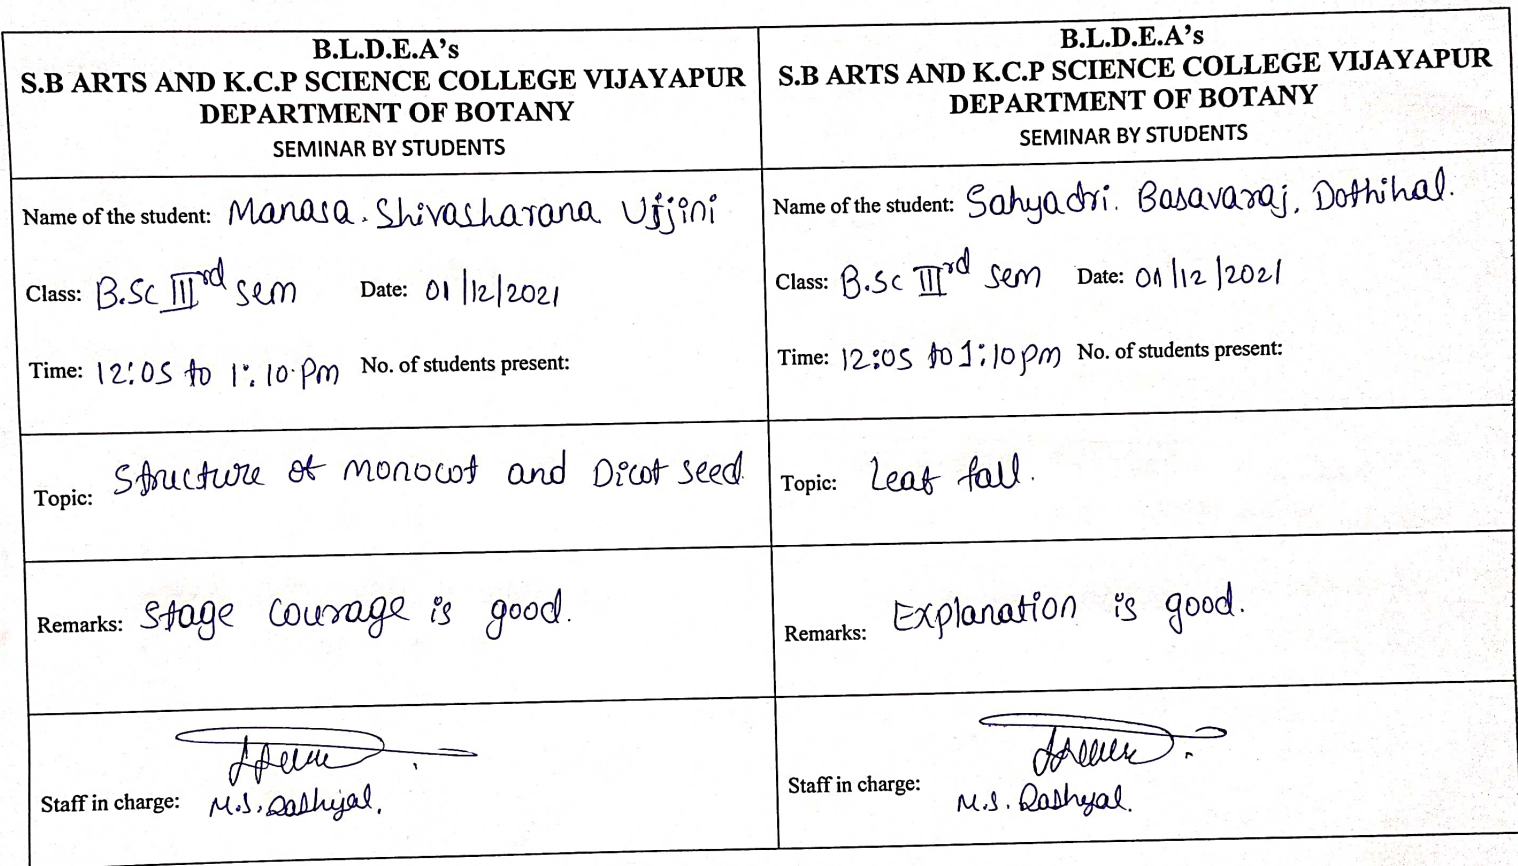 B.L.D.E.A's
S.B ARTS AND K.C.P SCIENCE COLLEGE VIJAYAPUR
DEPARTMENT OF BOTANY
SEMINAR BY STUDENTS
Name of the student: Manasa. Shivasharana Ujjini
Class: B.Sc IIIrd sem Date: 01/12/2021
Time: 12:05 to 1:10 Pm No. of students present:
Topic: Structure of monocot and Dicot seed
Remarks: Stage courage is good.
Staff in charge: M.S. Rashyal.
B.L.D.E.A's
S.B ARTS AND K.C.P SCIENCE COLLEGE VIJAYAPUR
DEPARTMENT OF BOTANY
SEMINAR BY STUDENTS
Name of the student: Sahyadri. Basavaraj. Dothihal.
Class: B.Sc IIIrd sem Date: 01/12/2021
Time: 12:05 to 1:10 pm No. of students present:
Topic: Leaf fall.
Remarks: Explanation is good.
Staff in charge: M.S. Rashyal.